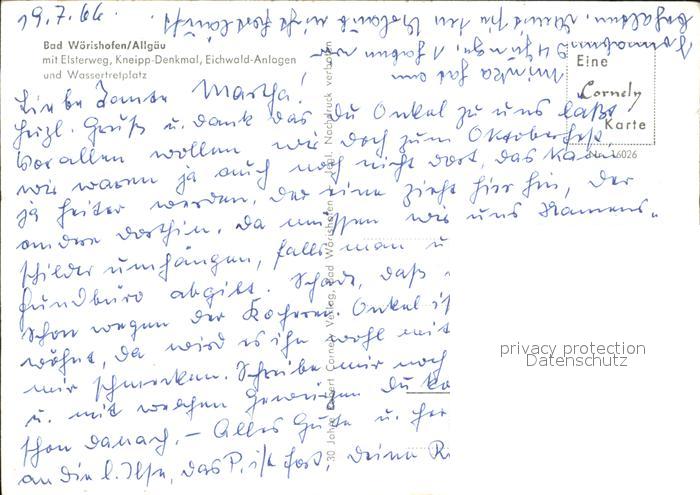 19.7.66.
Bad Wörishofen/Allgäu
mit Elsterweg, Kneipp-Denkmal, Eichwald-Anlagen
und Wassertretplatz
Eine
Cornely
Karte
Nr. 16026
Liebe Tante Martha!
Herzl. Gruß u. dank das du Onkel zu uns laßt,
Vor allen wollen wir doch zum Oktoberfest,
wir waren ja auch noch nicht dort, das kann
ja heiter werden. Der eine zieht hier hin, der
andere dorthin, da müssen wir uns Namens-
schilder umhängen, falls man u
Fundbüro abgibt. Schade, daß
schon wegen der Onkel is
wöhnt, da wird es ihm wohl mit
mir schmecken. Schreibe mir noch
u. mit welchen Gewürzen du ko
schon danach. - Alles Gute u. her
an die l. Ilse, das P. ist fort, Deine R
30 Jahre Cornely Verlag, Bad Wörishofen
Nachdruck verboten
privacy protection
Datenschutz